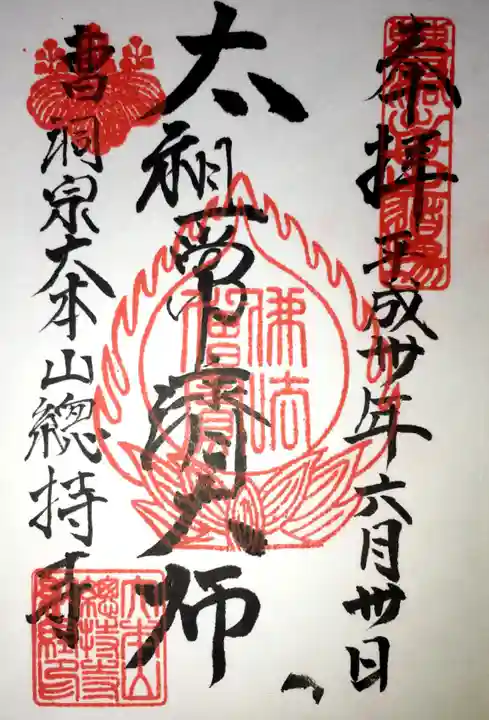 奉拝
平成卅年六月卅日
太祖常済大師
佛法僧寳
曹洞宗大本山總持寺
大本山
總持寺